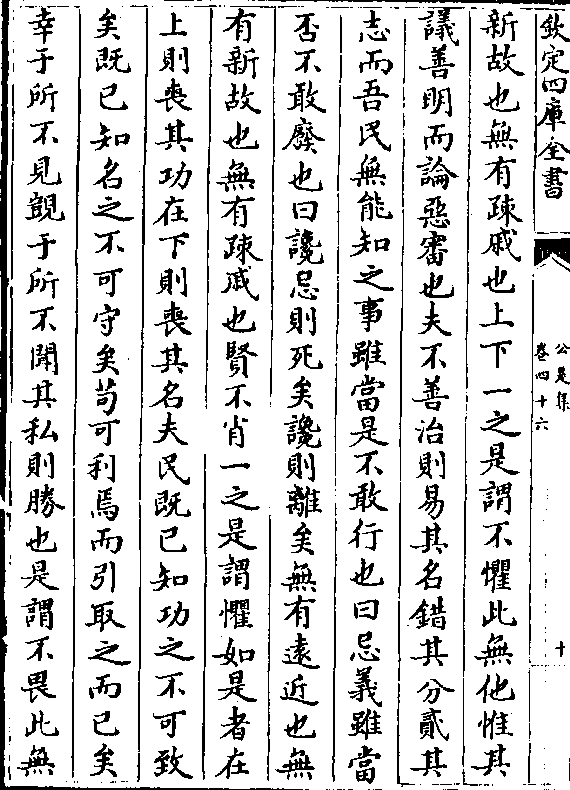 欽定四庫全書
公是集
卷四十六
十
新故也無有疎戚也上下一之是謂不懼此無他惟其
議善明而論惡審也夫不善治則易其名錯其分貳其
志而吾民無能知之事雖當是不敢行也曰忌義雖當
否不敢廢也曰讒忌則死矣讒則離矣無有遠近也無
有新故也無有疎戚也賢不肖一之是謂懼如是者在
上則喪其功在下則喪其名夫民既已知功之不可致
矣既已知名之不可守矣苟可利焉而引取之而已矣
幸于所不見覬于所不聞其私則勝也是謂不畏此無